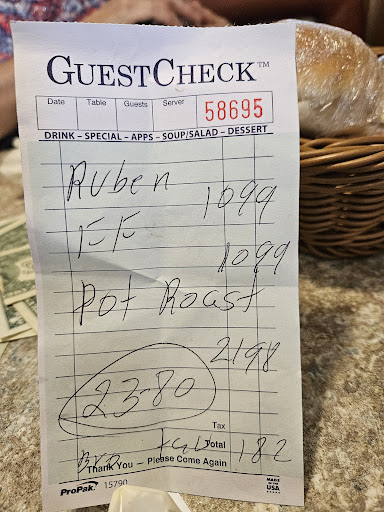 GUESTCHECK™
Date Table Guests Server 58695
DRINK – SPECIAL – APPS – SOUP/SALAD – DESSERT
Ruben 1099
FF
1099
Pot Roast
2198
23-80
Tax
Total 182
Thank You — Please Come Again
ProPak. 15790 MADE IN THE USA